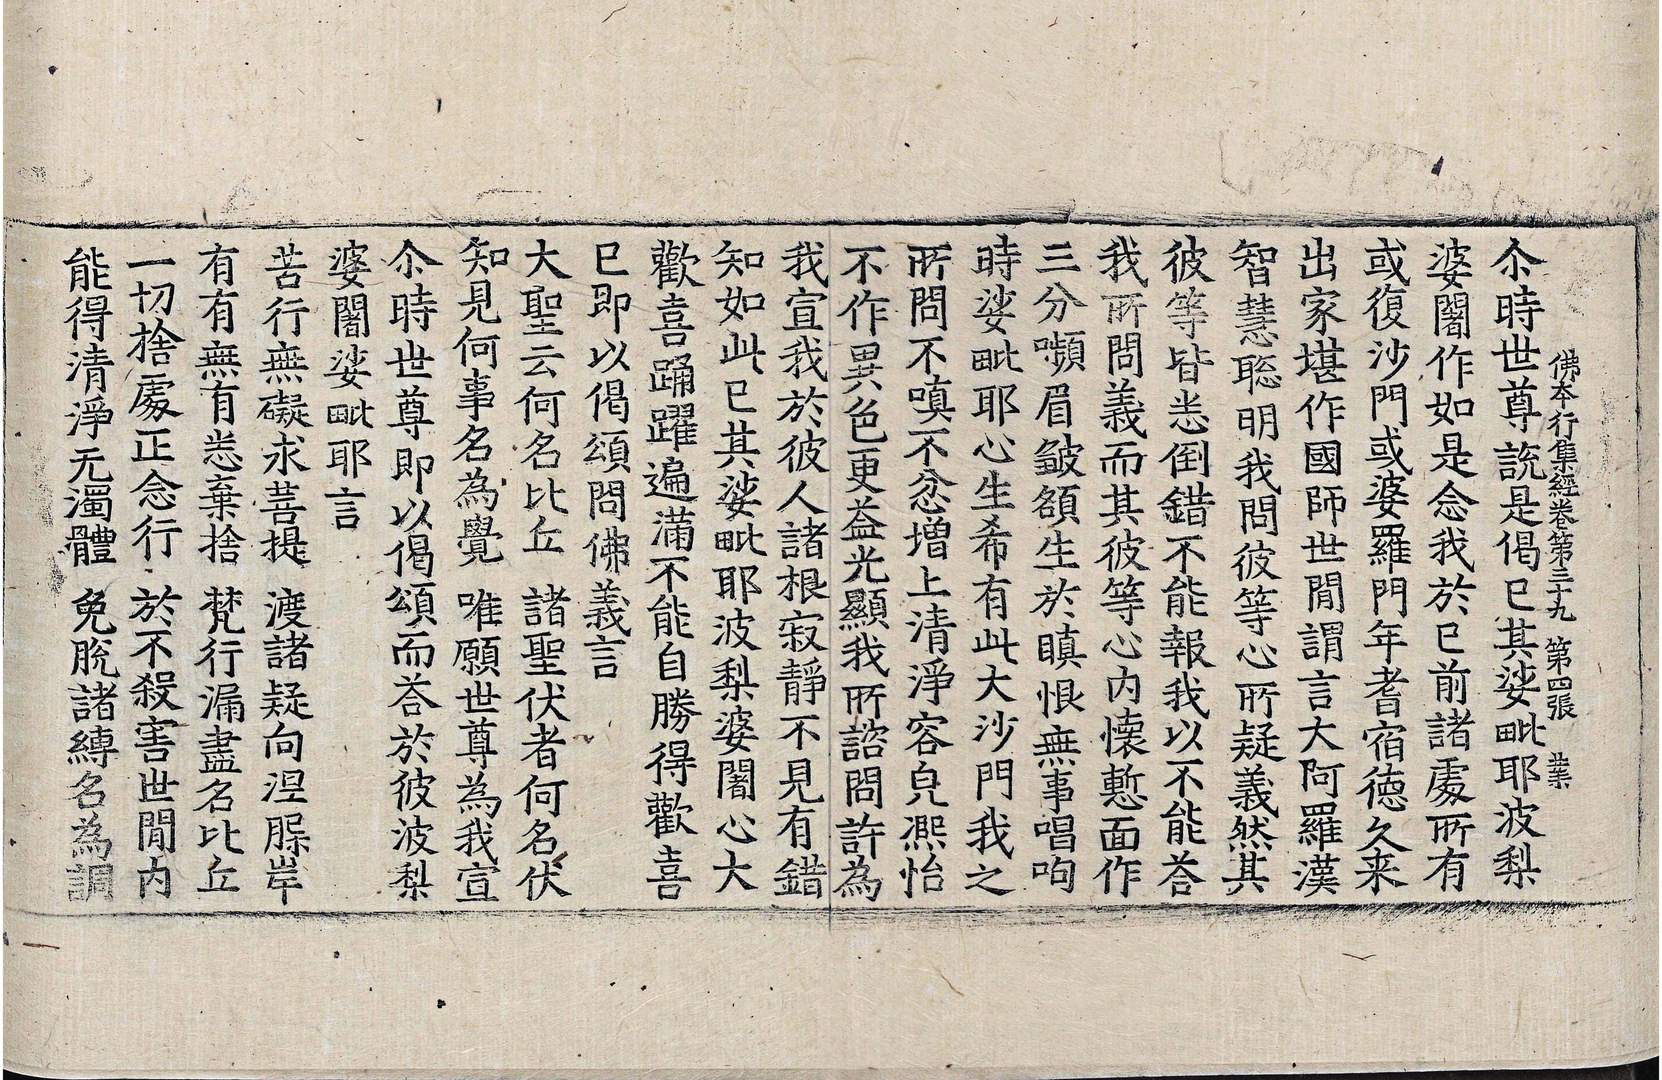 佛本行集經卷第三十九 第四張 業
尒時世尊說是偈已其娑毗耶波梨
婆闍作如是念我於已前諸處所有
或復沙門或婆羅門年耆宿德久来
出家堪作國師世閒謂言大阿羅漢
智慧聡明我問彼等心所疑義然其
彼等皆悉倒錯不能報我以不能荅
我所問義而其彼等心內懷慙面作
三分嚬眉皺頟生於瞋恨無事唱呴
時娑毗耶心生希有此大沙門我之
所問不嗔不忿增上清淨容皃凞怡
不作異色更益光顯我所諮問許為
我宣我於彼人諸根寂靜不見有錯
知如此已其娑毗耶波梨婆闍心大
歡喜踊躍遍滿不能自勝得歡喜
已即以偈頌問佛義言
大聖云何名比丘 諸聖伏者何名伏
知見何事名為覺 唯願世尊為我宣
尒時世尊即以偈頌而荅於彼波梨
婆闍娑毗耶言
苦行無礙求菩提 渡諸疑向涅腺岸
有有無有悉棄捨 梵行漏盡名比丘
一切捨處正念行 於不殺害世閒內
能得清淨无濁體 免脫諸縛名為調